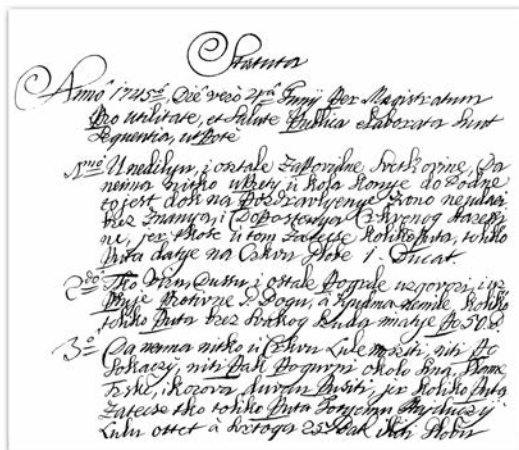 Statuta
Anno 1745to Die vero 4ta Junij Per Magistratum
Pro utilitate, et Salute Publica elaborata Sunt
Sequentia, ut Pote
1mo U nedilyu, i ostale Zapovidne Svetkovine, Da
neima nitko u kola konye do Podne
to jest dok na Pozdravlyenye Zvono neudari
brez Znanya, i Dopostenya Czrkvenog
ne, jer tkose u tom Zatecse koliko Puta, toliko
Puta datye na Czrkvu Globe 1. Ducat.
2do Tko Viru, Dussu i ostale Pogrde uzgovori, i
Psuje Protivne G. Bogu, a Lyudma nemile koliko
toliko Puta brez Svakog Suda imatye Po 50.
3o Da neima nitko u Czrkvu Lule nositi niti Po
Sokaczy, niti Pak Pogumni okolo Sina, Slame
Trske, i korova duvan Pusiti, jer koliko Puta
Zatecse tko toliko Puta Hajduczy
Lulu ottet a Svrtoga 25 Pak iliti Globu